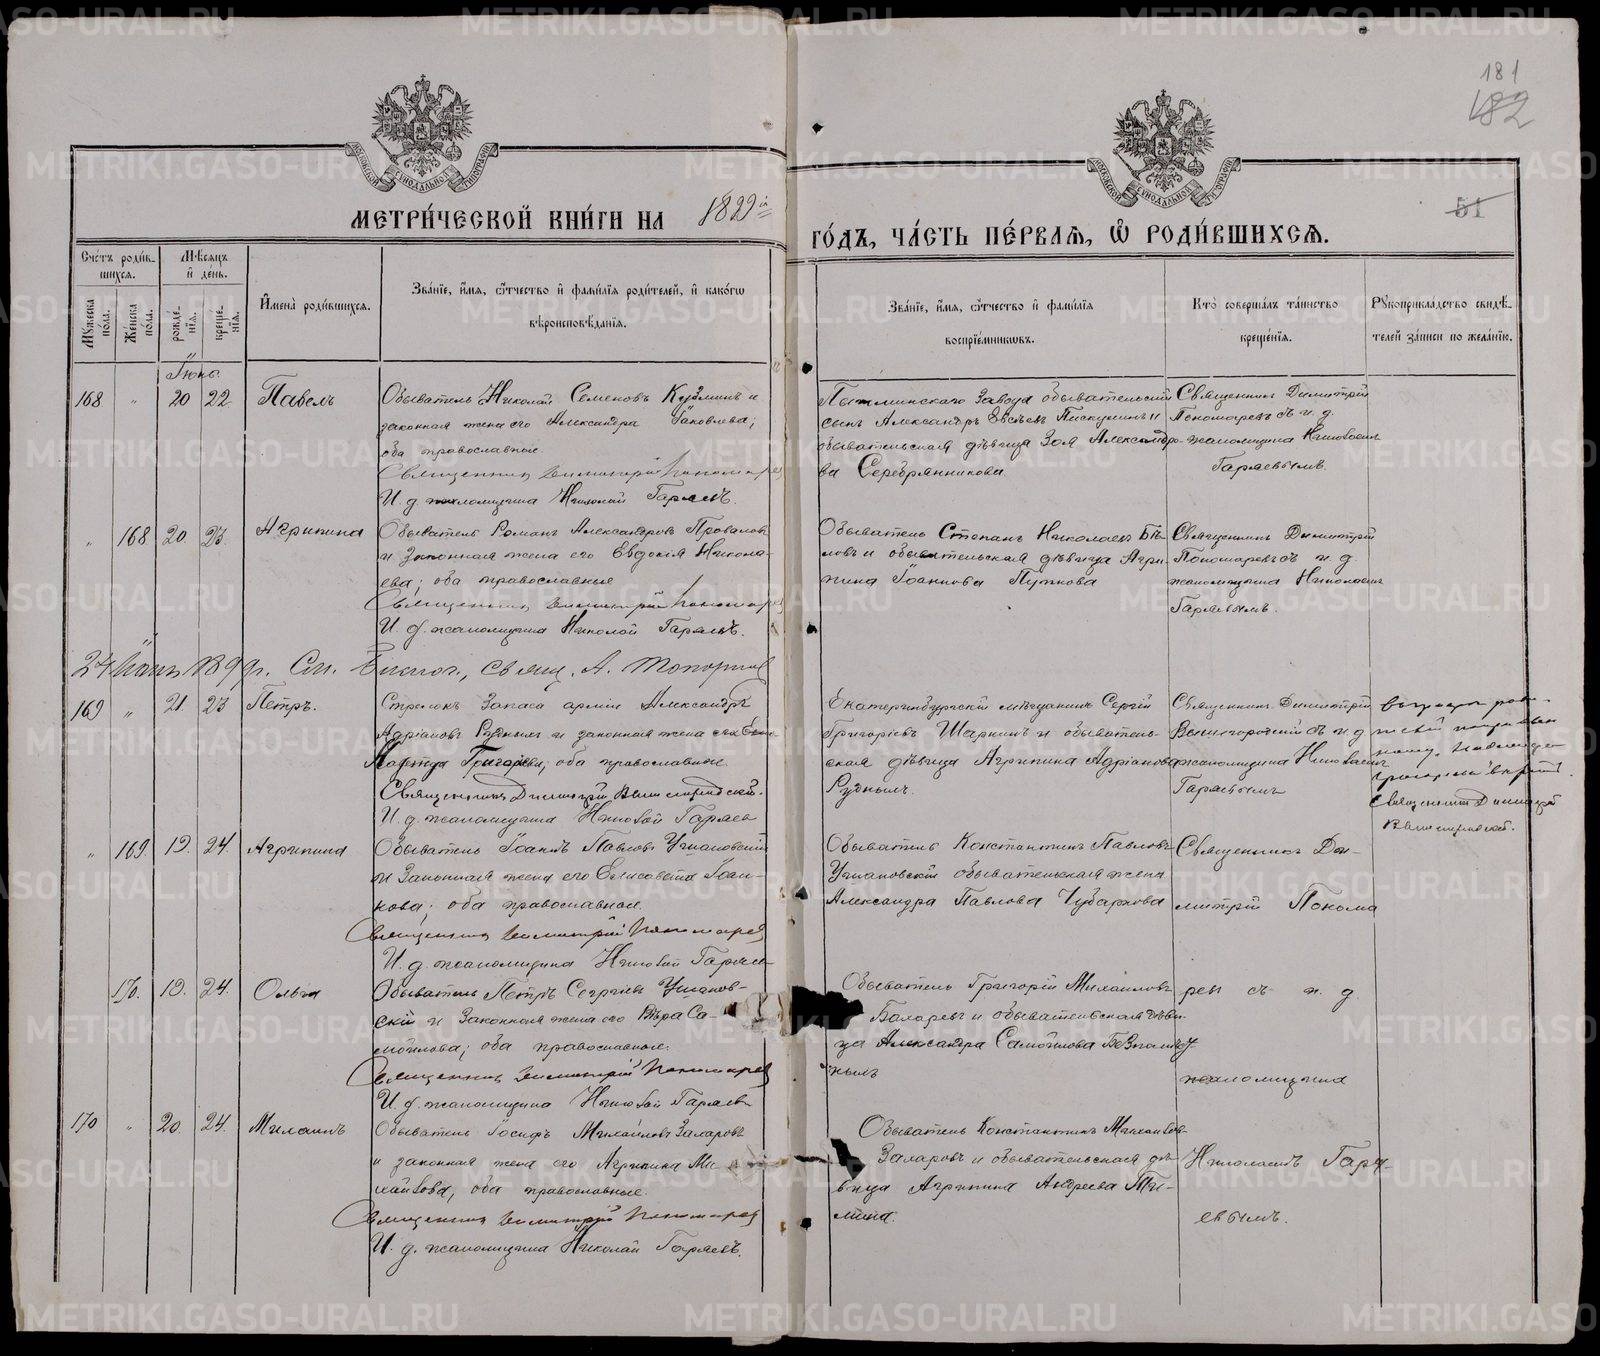 181
182
51
МОСКОВСКОЙ СѴНОДАЛЬНОЙ ТИПОГРАФІИ
МОСКОВСКОЙ СѴНОДАЛЬНОЙ ТИПОГРАФІИ
МЕТРИ́ЧЕСКОЙ КНИ́ГИ НА 1899й
ГО́ДЪ, ЧА́СТЬ ПЕ́РВАЯ, Ѡ РОДИ́ВШИХСЯ.
Сче́тъ роди́в-
шихся.
Мѣ́сяцъ
и де́нь.
Му́жеска по́ла.
Же́нска по́ла.
рожде́-
нїя.
креще́-
нїя.
И҆мена̀ роди́вшихся.
Зва́нїе, и҆́мя, о҆́тчество и҆ фами́лїя роди́телей, и҆ како́гѡ
вѣроисповѣ́данїя.
Зва́нїе, и҆́мя, о҆́тчество и҆ фами́лїя
воспрїе́мникѡвъ.
Кто̀ соверша́лъ та́инство
креще́нїя.
Рукоприкла́дство свидѣ́-
телей за́писи по жела́нїю.
Іюнь
168 " 20 22 Павелъ
Обыватель Николай Семеновъ Кузминъ и
законная жена его Александра Іаковлева;
оба православные
Священникъ Димитрій Пономарев
И. д. псаломщика Николай Гаряевъ.
Пышминскаго Завода обывательскій
сынъ Александръ Евсѣевъ Пискунинъ и
обывательская дѣвица Зоя Александро-
ва Серебрянникова
Священникъ Димитрій
Пономаревъ съ и. д.
псаломщика Николаемъ
Гаряевымъ.
" 168 20 23 Агрипина
Обыватель Романъ Александровъ Проваловъ
и Законная жена его Евдокія Никола-
ева; оба православные
Священникъ Димитрій Пономарев
И. д. псаломщика Николай Гаряевъ.
Обыватель Степанъ Николаевъ Бѣ-
ловъ и обывательская дѣвица Агри-
пина Іоаннова Пупкова
Священникъ Димитрій
Пономаревъ съ и д
псаломщика Николаемъ
Гаряевымъ.
24 Іюня 1899 г. См. Благоч., свящ. А. Топорков
169 " 21 23 Петръ.
Стрелокъ Запаса арміи Александръ
Адріановъ Рудныхъ и законная жена его
Марѳа Григорьева; оба православные
Священникъ Димитрій Вышегородскій.
И. д. псаломщика Николай Гаряев
Екатеринбургскій мѣщанинъ Сергій
Григорьевъ Шаркинъ и обыватель-
ская дѣвица Агрипина Адріанова
Рудныхъ.
Священникъ Димитрій
Вышегородскій съ и д
псаломщика Николаемъ
Гаряевымъ
Священникъ Димитрій
Вышегородскій.
" 169. 19. 24. Агрипина
Обыватель Іоаннъ Павловъ Ушаковскій
и Законная жена его Елисавета Іоан-
нова; оба православные.
Священникъ Димитрій Пономарев
И. д. псаломщика Николай Гаряев
Обыватель Константинъ Павловъ
Ушаковскій обывательская жена
Александра Павлова Чубаркова
Священникъ Ди-
митрій Понома
170. 19. 24. Ольга
Обыватель Петръ Сергіевъ Ушаков-
скій и Законная жена его Вѣра Са-
мойлова; оба православные.
Священникъ Димитрій Пономарев
И. д. псаломщика Николай Гаряев
Обыватель Григорій Михаиловъ
и обывательская дѣви-
ца Александра Самойлова
ныхъ
ревъ съ и. д
псаломщика
170 " 20. 24. Михаилъ
Обыватель Іосифъ Михаиловъ Захаровъ
и законная жена его Агрипина Ми-
хайлова, оба православные.
Священникъ Димитрій Пономарев
И. д. псаломщика Николай Гаряевъ.
Обыватель Константинъ Михаилов
Захаровъ и обывательская дѣ-
вица Агрипина Андреева
Николаемъ Гаря-
евымъ.
METRIKI.GASO-URAL.RU